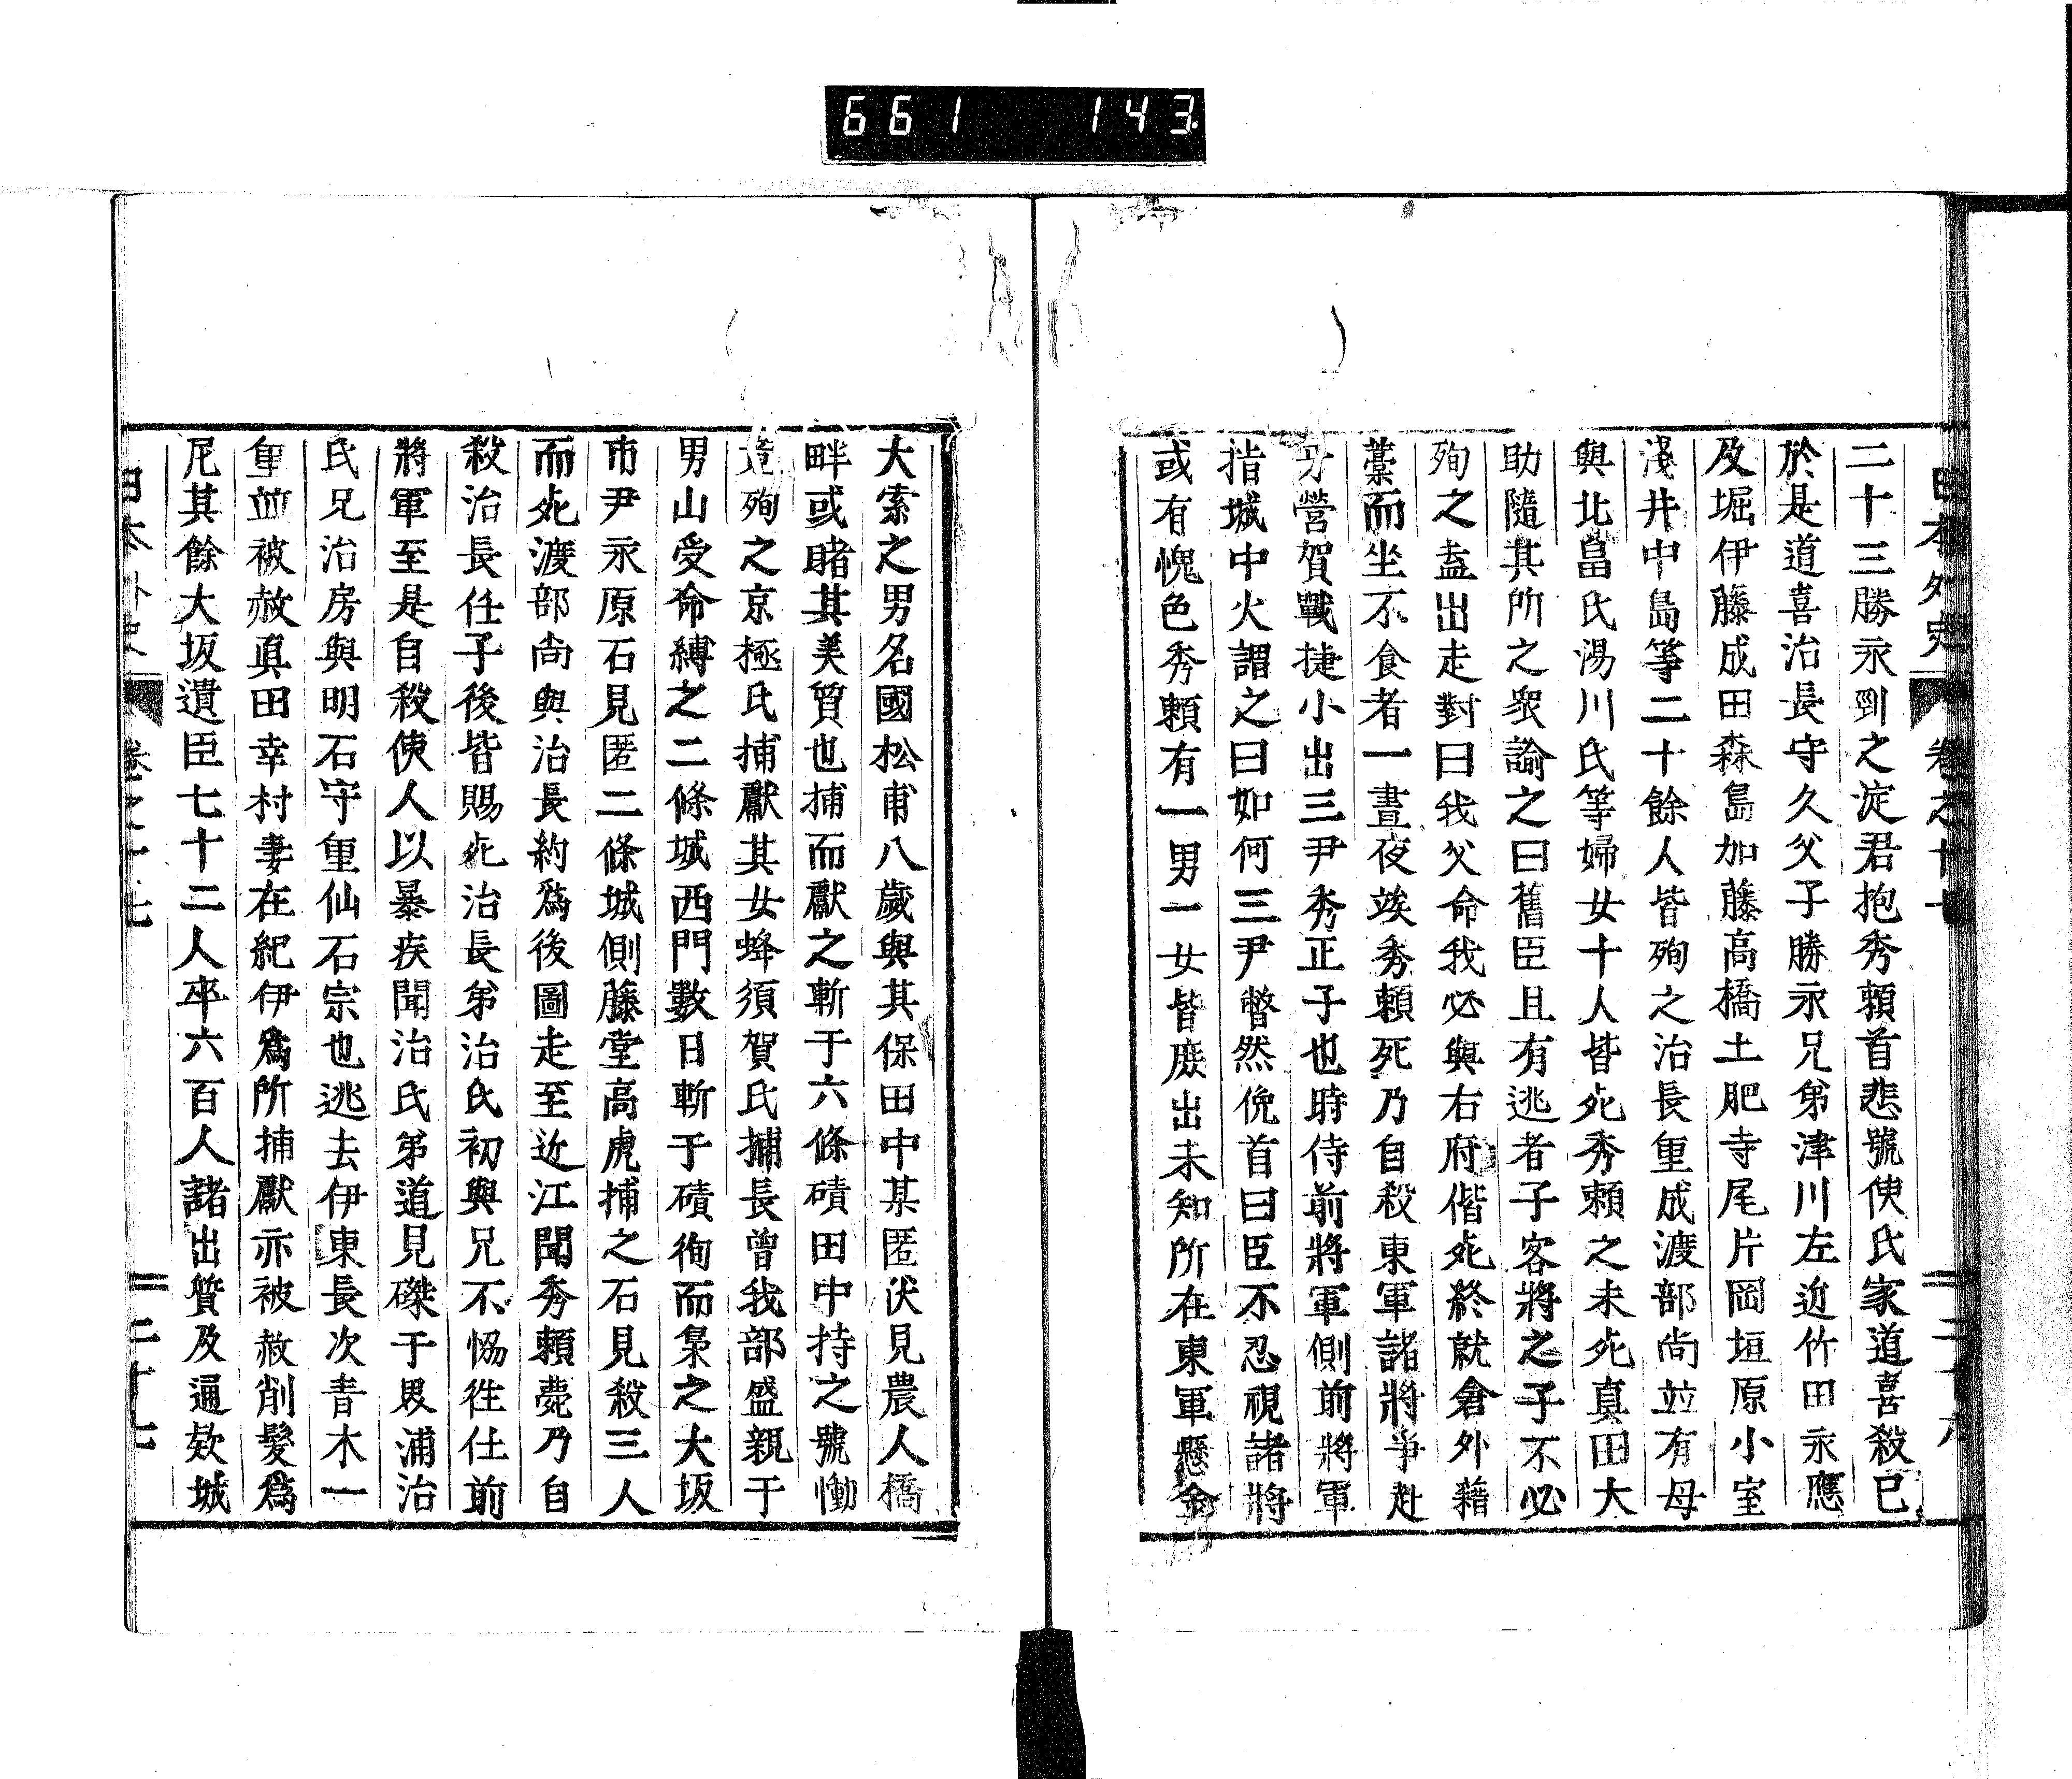 661 143
日本外史 卷之十七
二十三勝永剄之淀君抱秀賴首悲號使氏家道喜殺已
於是道喜治長守久父子勝永兄弟津川左近竹田永應
及堀伊藤成田森島加藤高橋土肥寺尾片岡垣原小室
淺井中島等二十餘人皆殉之治長重成渡部尚並有母
與北畠氏湯川氏等婦女十人皆死秀賴之未死真田大
助隨其所之衆諭之曰舊臣且有逃者子客將之子不必
殉之盍出走對曰我父命我必與右府偕死終就倉外藉
藁而坐不食者一晝夜竢秀賴死乃自殺東軍諸將爭赴
牙營賀戰捷小出三尹秀正子也時侍前將軍側前將軍
指城中火謂之曰如何三尹瞥然俛首曰臣不忍視諸將
或有愧色秀賴有一男一女皆庶出未知所在東軍懸金
大索之男名國松甫八歲與其保田中某匿伏見農人橋
畔或睹其美質也捕而獻之斬于六條磧田中持之號慟
竟殉之京極氏捕獻其女蜂須賀氏捕長曾我部盛親于
男山受命縛之二條城西門數日斬于磧徇而梟之大坂
市尹永原石見匿二條城側藤堂高虎捕之石見殺三人
而死渡部尚與治長約爲後圖走至近江聞秀賴薨乃自
殺治長任子後皆賜死治長弟治氏初與兄不恊徃仕前
將軍至是自殺使人以暴疾聞治氏弟道見磔于畏浦治
氏兄治房與明石守重仙石宗也逃去伊東長次青木一
重並被赦真田幸村妻在紀伊爲所捕獻亦被赦削髮爲
尼其餘大坂遺臣七十二人卒六百人諸出質及逼欸城
日本外史 卷之十七 二十七